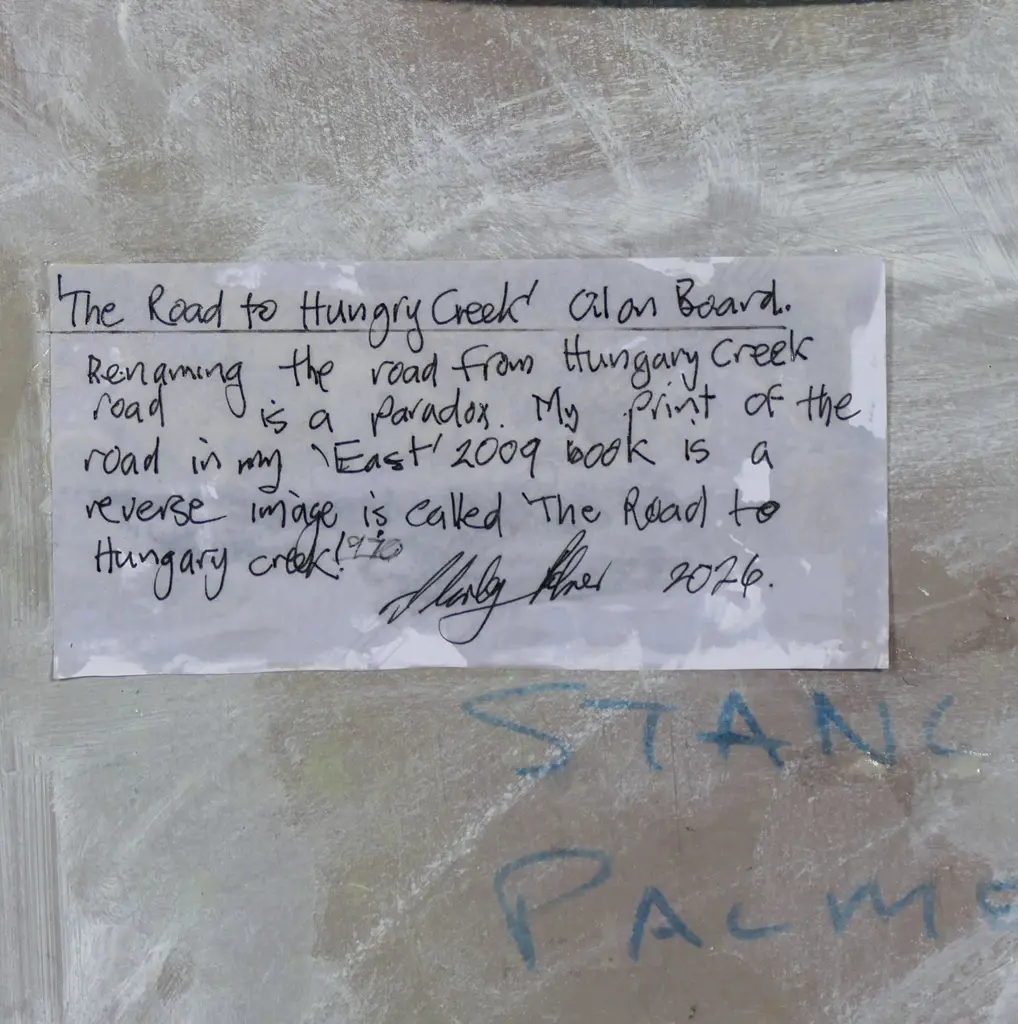 'The Road to Hungry Creek' Oil on Board.
Renaming the road from Hungary Creek
road is a paradox. My print of the
road in my 'East' 2009 book is a
reverse image is called 'The Road to
Hungary Creek! 1970
Stanley Palmer 2026.
STANL
PALME